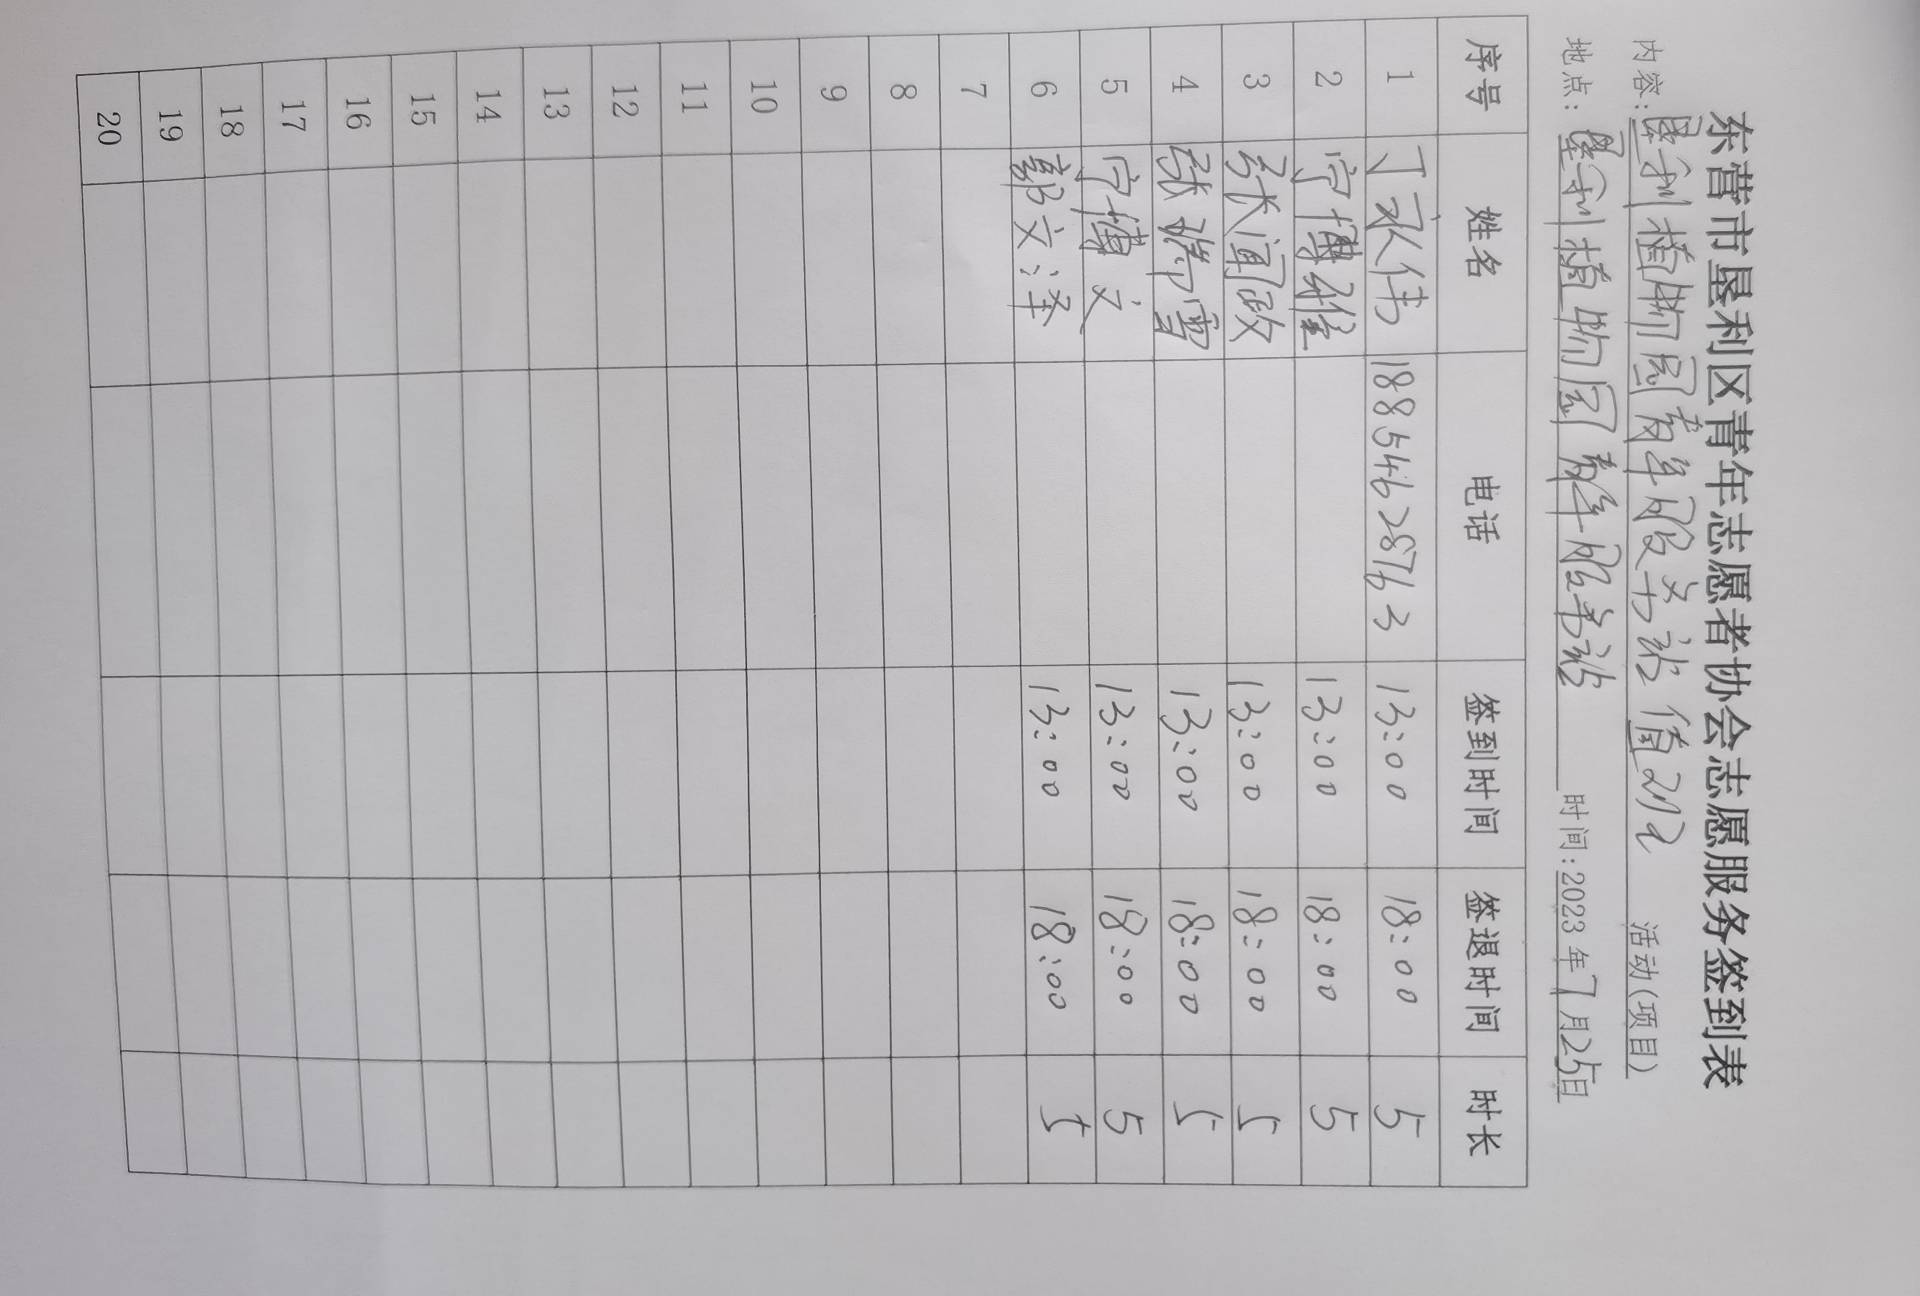 东营市垦利区青年志愿者协会志愿服务签到表
内容:垦利植物园青年服务站值班 活动(项目)
地点:垦利植物园青年服务站 时间:2023年7月25日
序号 姓名 电话 签到时间 签退时间 时长
1 丁永伟 18854628763 13:00 18:00 5
2 宁博雅 13:00 18:00 5
3 张闻政 13:00 18:00 5
4 张瑞雪 13:00 18:00 5
5 宁博文 13:00 18:00 5
6 郭文泽 13:00 18:00 5
7
8
9
10
11
12
13
14
15
16
17
18
19
20